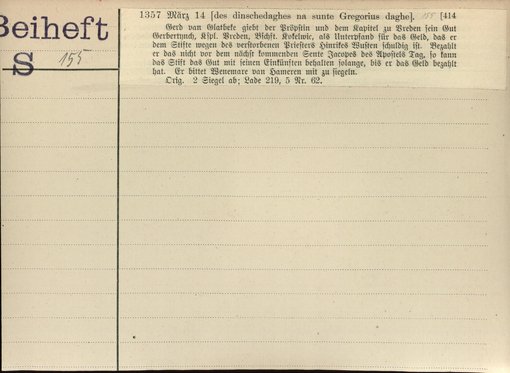 Beiheft
S
155
1357 März 14 [des dinschedaghes na sunte Gregorius daghe]. 155 [414
Gerd van Glatbeke giebt der Pröpstin und dem Kapitel zu Vreden sein Gut
Gerbertynch, Kspl. Vreden, Bschft. Kokelwic, als Unterpfand für das Geld, das er
dem Stifte wegen des verstorbenen Priesters Hinrikes Wusten schuldig ist. Bezahlt
er das nicht vor dem nächst kommenden Sente Jacopes des Apostels Tag, so kann
das Stift das Gut mit seinen Einkünften behalten solange, bis er das Geld bezahlt
hat. Er bittet Wenemare van Hameren mit zu siegeln.
Orig. 2 Siegel ab; Lade 219, 5 Nr. 62.